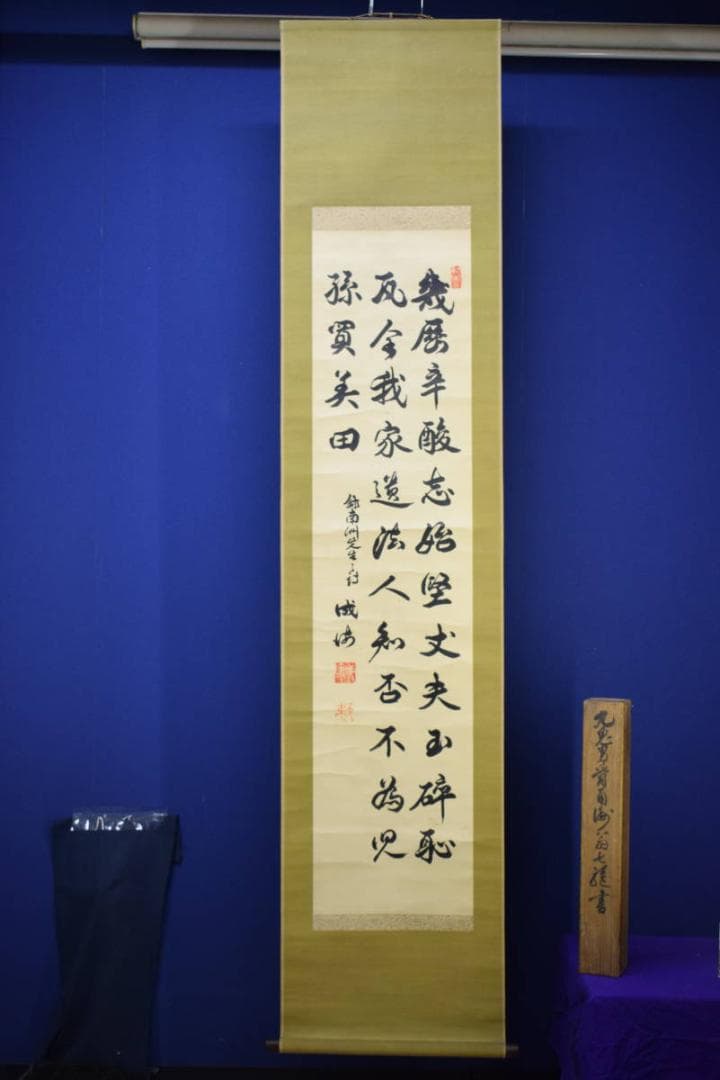 幾歴辛酸志始堅丈夫玉碎恥
瓦全我家遺法人知否不為児
孫買美田
録南洲先生之詩
成海
七絶書